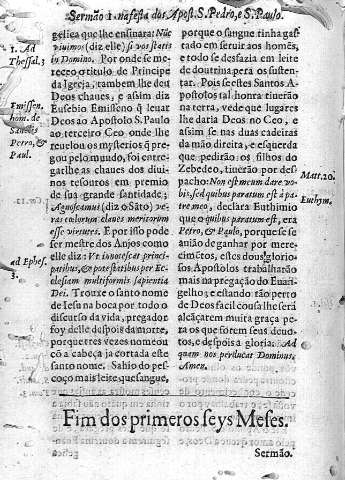 Sermão 1. na festa dos Apost. S. Pedro, e S. Paulo.
1. Ad
Thessal. 3
Emissen.
hom. de
Sanctis
Petro, &
Paul.
ad Ephes.
3.
gelica que lhe ensinara: Nūc
vivimos (diz elle) si vos statis
in Domino. Por onde se me-
receo o titulo de Principe
da Igreja, tambem lhe deu
Deos chaves, e assim diz
Eusebio Emisseno q̃ levar
Deos ao Apostolo S. Paulo
ao terceiro Ceo onde lhe
revelou os misterios q̃ pre-
gou pelo mundo, foi entre-
garlhe as chaues dos divi-
nos tesouros em premio
de sua grande santidade;
Agnoscamus (diz o Sāto) ve-
ras cœlorum claues meritorum
esse virtutes. E por isso pode
ser mestre dos Anjos como
elle diz: Vt innotescat princi-
patibus, & potestatibus per Ec-
clesiam multiformis sapientia
Dei. Trouxe o santo nome
de Iesu na boca por todo o
discurso da vida, pregador
foy delle despois da morte,
porque tres vezes nomeou
cõ a cabeça ja cortada este
santo nome. Sahio do pes-
coço mais leite que sangue,
porque o sangue tinha gas-
tado em seruir aos homẽs,
e todo se desfazia em leite
de doutrina pera os susten-
tar. Pois se estes Santos A-
postolos tal honra tiuerão
na terra, vede que lugares
lhe daria Deos no Ceo, e
assim se nas duas cadeiras
da mão direita, e esquerda
que pedirão os filhos do
Zebedeo, tiuerão por des-
pacho: Non est meum dare vo-
bis, sed quibus paratum est à pa-
tre meo, declara Euthimio
que o quibus paratum est, era
Petro, & Paulo, porque se se
anião de ganhar por mere-
cimẽtos, estes dous glorio-
sos Apostolos trabalharão
mais na pregação do Euan-
gelho; e estando tão perto
de Deos facil cousa lhe será
alcançarem muita graça pe-
ra os que forem seus deuo-
tos, e despois a gloria: Ad
quam nos perducat Dominus.
Amen.
Matt. 20.
Euthym.
Fim dos primeros seys Meses.
Sermão.